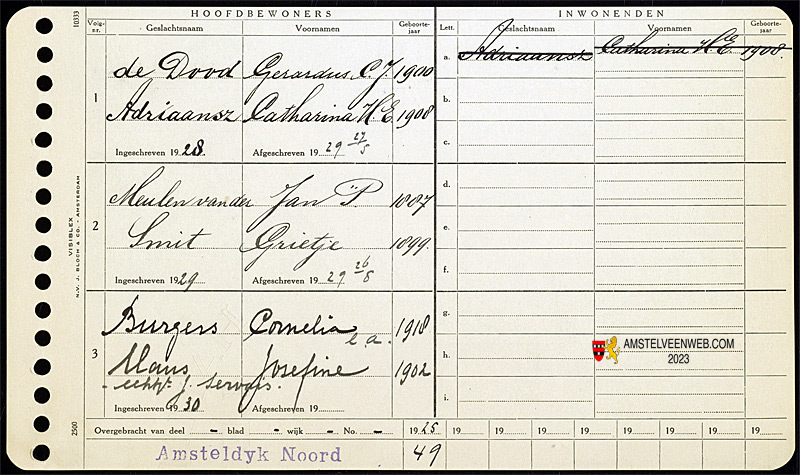 HOOFDBEWONERS
INWONENDEN
Volg-nr. Geslachtsnaam Voornamen Geboorte-jaar Lett. Geslachtsnaam Voornamen Geboorte-jaar
10333
1
de Dood Gerardus C. J. 1900
Adriaansz Catharina H. E. 1908
Ingeschreven 1928 Afgeschreven 1929 27/5
2
Meulen van der Jan P. 1887
Smit Grietje 1899
Ingeschreven 1929 Afgeschreven 1929 26/8
3
Burgers Cornelia e.a. 1918
Maus Josefine 1902
- echtg. J. Servais.
Ingeschreven 1930 Afgeschreven 19
a. Adriaansz Catharina H. E. 1908
b.
c.
d.
e.
f.
g.
h.
i.
VISIBLEX
N.V. J. BLOCH & CO. - AMSTERDAM
2500
Overgebracht van deel - blad - wijk - No. - 1925 19 19 19 19 19 19 19 19 19
Amsteldyk Noord 49
AMSTELVEENWEB.COM
2023